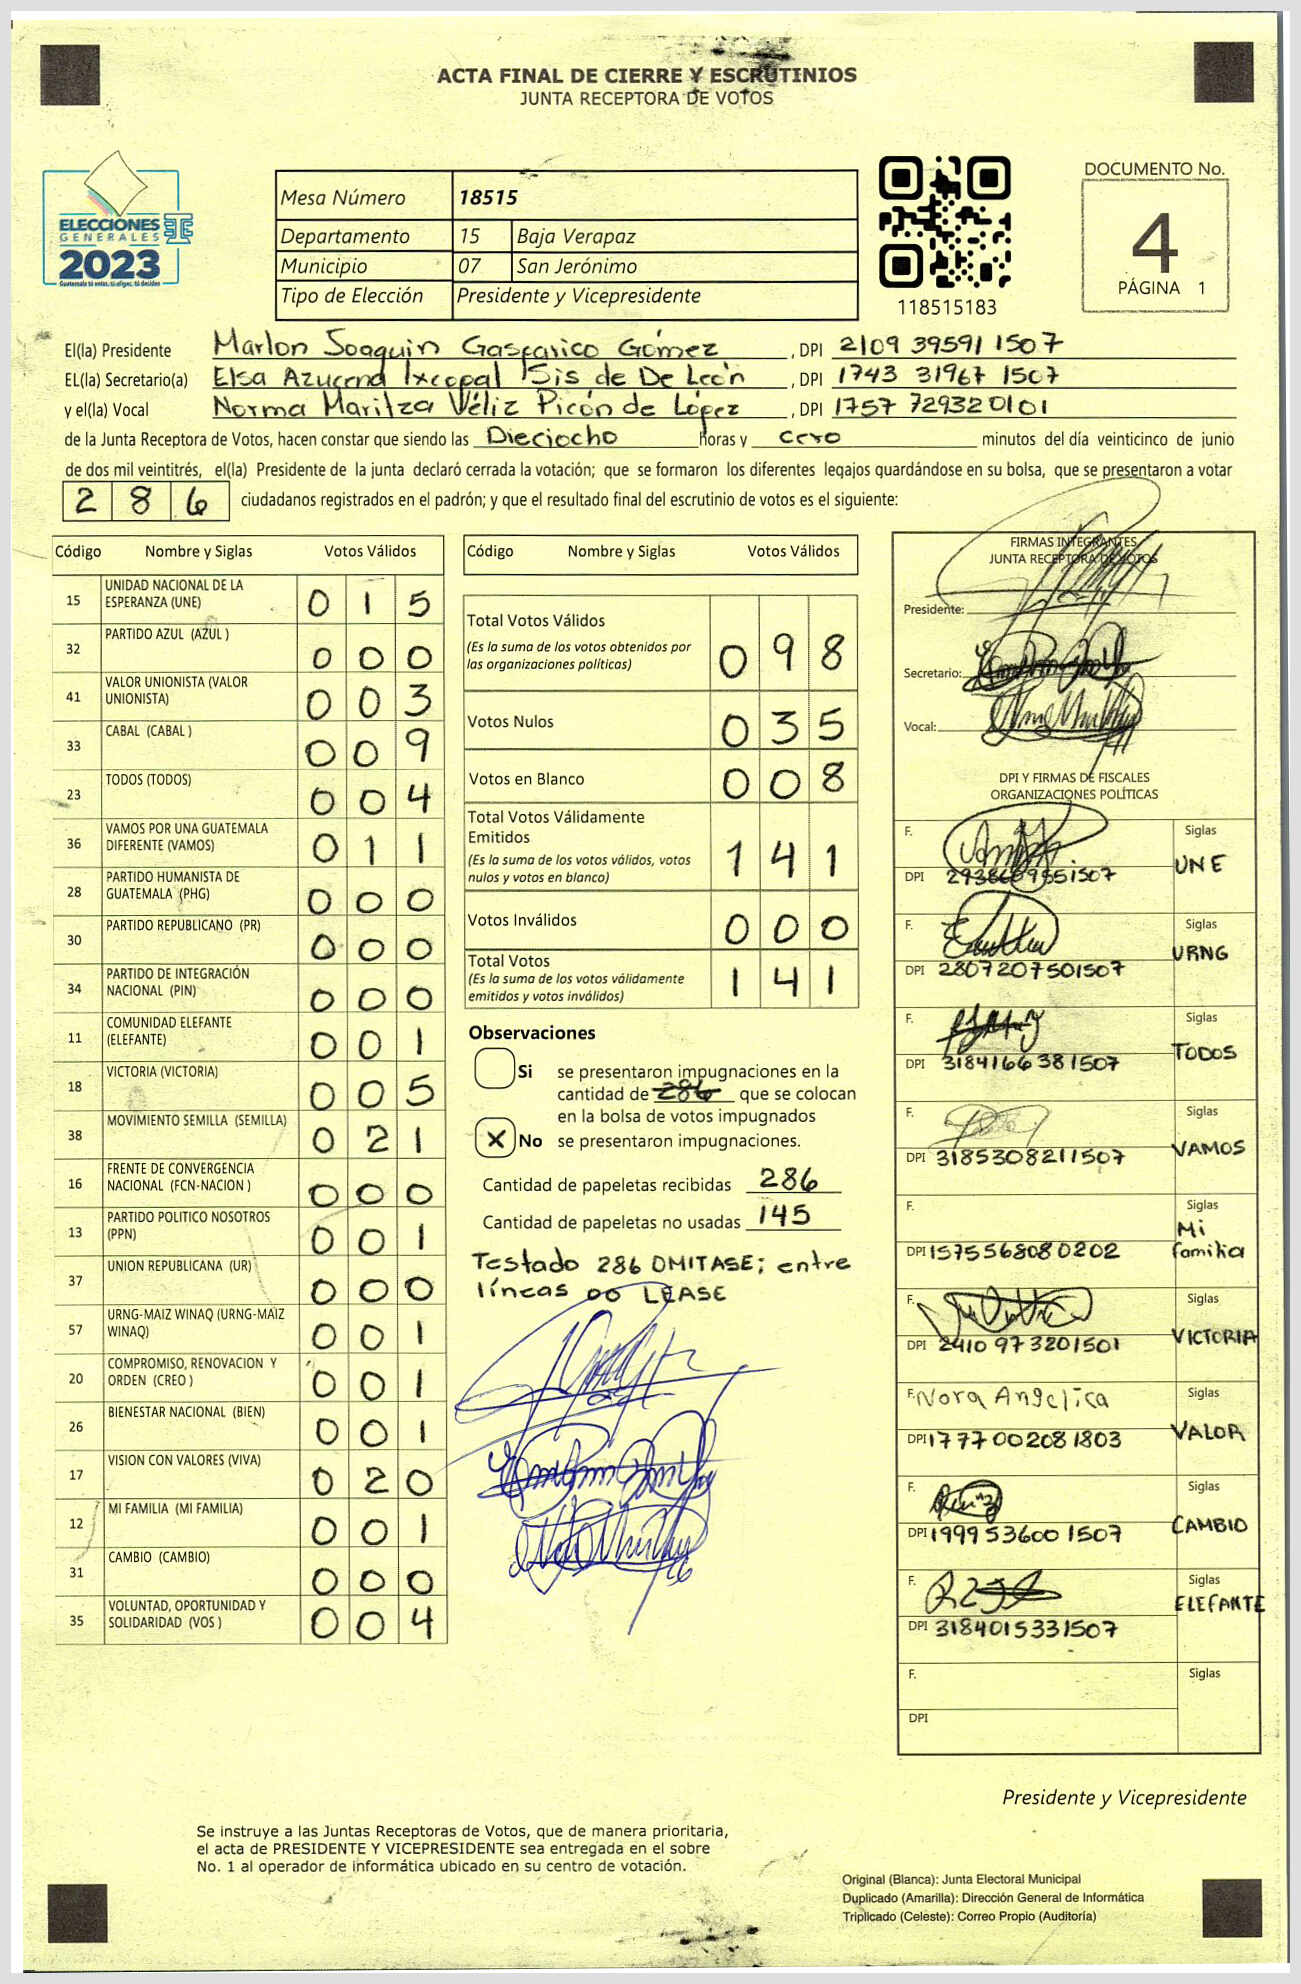 ACTA FINAL DE CIERRE Y ESCRUTINIOS
JUNTA RECEPTORA DE VOTOS
ELECCIONES
GENERALES
2023
Guatemala tú votas, tú eliges, tú decides
Mesa Número 18515
Departamento 15 Baja Verapaz
Municipio 07 San Jerónimo
Tipo de Elección Presidente y Vicepresidente
118515183
DOCUMENTO No.
4
PÁGINA 1
El(la) Presidente Marlon Joaquin Gasparico Gómez, DPI 2109 39591 1507
EL(la) Secretario(a) Elsa Azucena Ixcopal Sis de De León, DPI 1743 31967 1507
y el(la) Vocal Norma Maritza Véliz Picón de López, DPI 1757 72932 0101
de la Junta Receptora de Votos, hacen constar que siendo las Dieciocho horas y cero minutos del día veinticinco de junio
de dos mil veintitrés, el(la) Presidente de la junta declaró cerrada la votación; que se formaron los diferentes legajos quardándose en su bolsa, que se presentaron a votar
286 ciudadanos registrados en el padrón; y que el resultado final del escrutinio de votos es el siguiente:
Código Nombre y Siglas Votos Válidos
15 UNIDAD NACIONAL DE LA ESPERANZA (UNE) 015
32 PARTIDO AZUL (AZUL ) 000
41 VALOR UNIONISTA (VALOR UNIONISTA) 003
33 CABAL (CABAL ) 009
23 TODOS (TODOS) 004
36 VAMOS POR UNA GUATEMALA DIFERENTE (VAMOS) 011
28 PARTIDO HUMANISTA DE GUATEMALA (PHG) 000
30 PARTIDO REPUBLICANO (PR) 000
34 PARTIDO DE INTEGRACIÓN NACIONAL (PIN) 000
11 COMUNIDAD ELEFANTE (ELEFANTE) 001
18 VICTORIA (VICTORIA) 005
38 MOVIMIENTO SEMILLA (SEMILLA) 021
16 FRENTE DE CONVERGENCIA NACIONAL (FCN-NACION ) 000
13 PARTIDO POLITICO NOSOTROS (PPN) 001
37 UNION REPUBLICANA (UR) 000
57 URNG-MAIZ WINAQ (URNG-MAIZ WINAQ) 001
20 COMPROMISO, RENOVACION Y ORDEN (CREO ) 001
26 BIENESTAR NACIONAL (BIEN) 001
17 VISION CON VALORES (VIVA) 020
12 MI FAMILIA (MI FAMILIA) 001
31 CAMBIO (CAMBIO) 000
35 VOLUNTAD, OPORTUNIDAD Y SOLIDARIDAD (VOS ) 004
Código Nombre y Siglas Votos Válidos
Total Votos Válidos 098
(Es la suma de los votos obtenidos por
las organizaciones políticas)
Votos Nulos 035
Votos en Blanco 008
Total Votos Válidamente
Emitidos 141
(Es la suma de los votos válidos, votos
nulos y votos en blanco)
Votos Inválidos 000
Total Votos 141
(Es la suma de los votos válidamente
emitidos y votos inválidos)
Observaciones
Si se presentaron impugnaciones en la
cantidad de 286 que se colocan
en la bolsa de votos impugnados
X No se presentaron impugnaciones.
Cantidad de papeletas recibidas 286
Cantidad de papeletas no usadas 145
Testado 286 OMITASE; entre
líneas 00 LEASE
FIRMAS INTEGRANTES
JUNTA RECEPTORA DE VOTOS
Presidente:
Secretario:
Vocal:
DPI Y FIRMAS DE FISCALES
ORGANIZACIONES POLÍTICAS
F. Siglas
DPI UNE
F. Siglas
DPI 2807207501507 URNG
F. Siglas
DPI 3184166381507 TODOS
F. Siglas
DPI 3185308211507 VAMOS
F. Siglas
DPI 1575568080202 Mi familia
F. Siglas
DPI 2410973201501 VICTORIA
F. Nora Angelica Siglas
DPI 1777002081803 VALOR
F. Siglas
DPI 1999536001507 CAMBIO
F. Siglas
DPI 3184015331507 ELEFANTE
F. Siglas
DPI
Presidente y Vicepresidente
Se instruye a las Juntas Receptoras de Votos, que de manera prioritaria,
el acta de PRESIDENTE Y VICEPRESIDENTE sea entregada en el sobre
No. 1 al operador de informática ubicado en su centro de votación.
Original (Blanca): Junta Electoral Municipal
Duplicado (Amarilla): Dirección General de Informática
Triplicado (Celeste): Correo Propio (Auditoría)